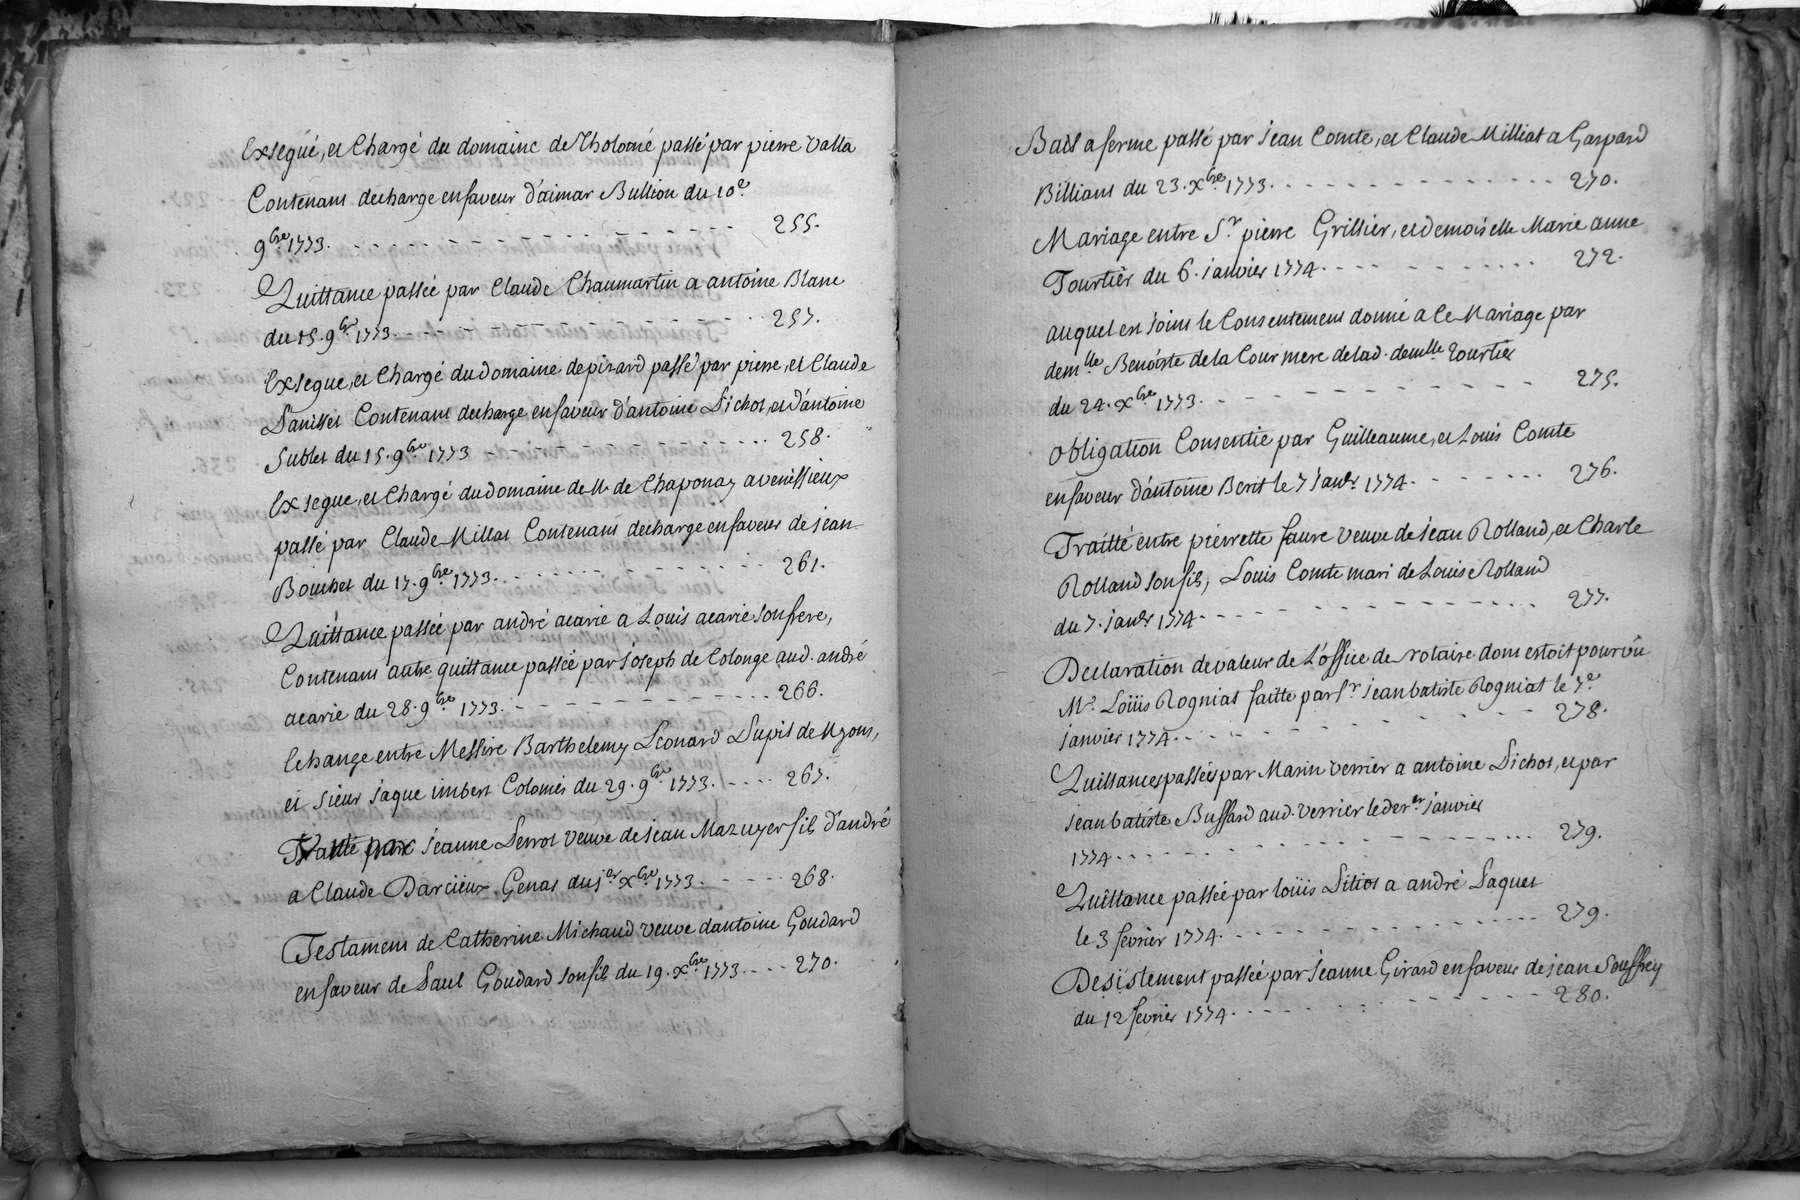 Exsegué, et Chargé du domaine de Tholomé passé par pierre valla
Contenant decharge en faveur d'aimar Bullion du 10e
9bre 1773. - - - - - - - - - - - - 255.
Quittance passée par Claude Chaumartin a antoine Blanc
du 15. 9bre 1773. - - - - - - - - - - - - 257.
Exsegue, et Chargé du domaine de pirard passé par pierre, et Claude
Danisset Contenant decharge en faveur d'antoine Pichot, et d'antoine
Sublet du 15. 9bre 1773 - - - - - - - - - - 258.
Exsegue, et Chargé du domaine de M. de Chaponay a venissieux
passé par Claude Millat Contenant decharge en faveur de jean
Bouchet du 17. 9bre 1773. - - - - - - - - - - 261.
Quittance passée par andré acarie a Louis acarie son frere,
Contenant autre quittance passée par joseph de Colonge aud. andré
acarie du 28. 9bre 1773. - - - - - - - - - - 266.
Echange entre Messire Barthelemy Leonard Pupil de Myons,
et sieur jaque imbert Colomés du 29. 9bre 1773. - - - - 267.
jeanne Perrot veuve de jean Mazuyer fils d'andré
a Claude Darcieux Genas du 1er Xbre 1773. - - - - - 268.
Testament de Catherine Michaud veuve d'antoine Goudard
en faveur de Paul Goudard son fils du 19. Xbre 1773. - - - - 270.
Bail a ferme passé par jean Comte, et Claude Milliat a Gaspard
Billiant du 23. Xbre 1773. - - - - - - - - - - - - 270.
Mariage entre Sr pierre Grillier, et demoiselle Marie anne
Tourtier du 6. janvier 1774. - - - - - - - - - - 272.
auquel en joint le Consentement donné a Ce Mariage par
demlle Benoiste de la Cour mere de lad. demlle Tourtier
du 24. Xbre 1773. - - - - - - - - - - - - 275.
obligation Consentie par Guilleaume, et Louis Comte
en faveur d'antoine Berit le 7 janer 1774. - - - - - - - - 276.
Traitté entre pierrette faure veuve de jean Rolland, et Charle
Rolland son fils, Louis Comte mari de Louise Rolland
du 7. janer 1774. - - - - - - - - - - - - 277.
Declaration de valeur de L'office de notaire dont estoit pourvû
Me. Loüis Rogniat faitte par Sr jean batiste Rogniat le 7e
janvier 1774. - - - - - - - - - - - - 278.
Quittances passées par Marin verrier a antoine Pichot, et par
jean batiste Buffard aud. verrier le der er janvier
1774. - - - - - - - - - - - - 279.
Quittance passée par loüis Pitiot a andré Paquet
le 3 fevrier 1774. - - - - - - - - - - - - 279.
Desistement passée par jeanne Girard en faveur de jean Souffrey
du 12 fevrier 1774. - - - - - - - - - - 280.